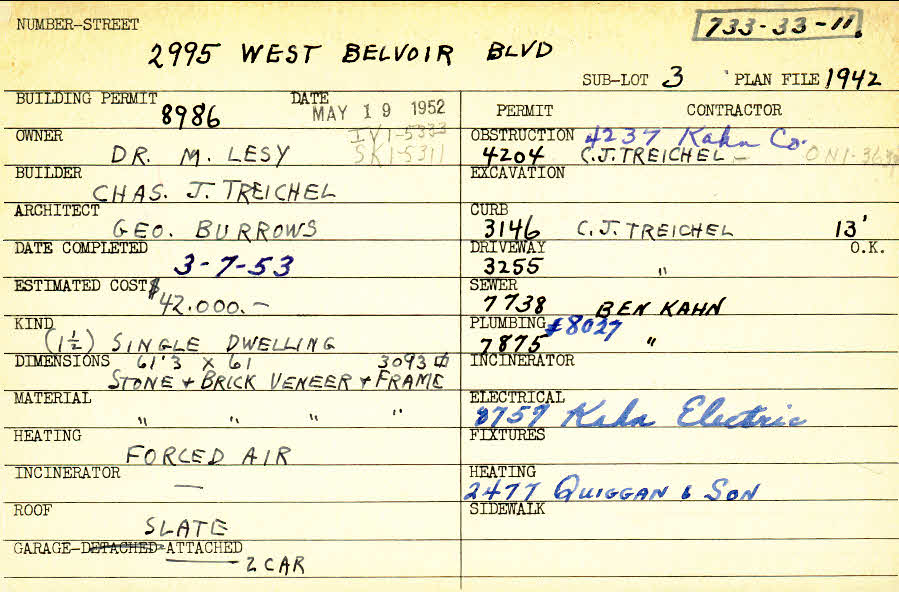 NUMBER-STREET
733-33-11.
2995 WEST BELVOIR BLVD
SUB-LOT 3 PLAN FILE 1942
BUILDING PERMIT 8986 DATE MAY 19 1952
OWNER DR. M. LESY
IV1-5333
SK1-5311
BUILDER CHAS. J. TREICHEL
ARCHITECT GEO. BURROWS
DATE COMPLETED 3-7-53
ESTIMATED COST $42.000.-
KIND (1½) SINGLE DWELLING
DIMENSIONS 61'3 X 61 3093 ▯
STONE + BRICK VENEER + FRAME
MATERIAL " " " "
HEATING FORCED AIR
INCINERATOR —
ROOF SLATE
GARAGE-DETACHED-ATTACHED
2 CAR
PERMIT CONTRACTOR
OBSTRUCTION 4237 Kahn Co.
4204 C.J. TREICHEL -
EXCAVATION
CURB
3146 C.J. TREICHEL 13'
DRIVEWAY O.K.
3255 "
SEWER
7738 BEN KAHN
PLUMBING #8027
7875 "
INCINERATOR
ELECTRICAL
8757 Kahn Electric
FIXTURES
HEATING
2477 QUIGGAN & SON
SIDEWALK